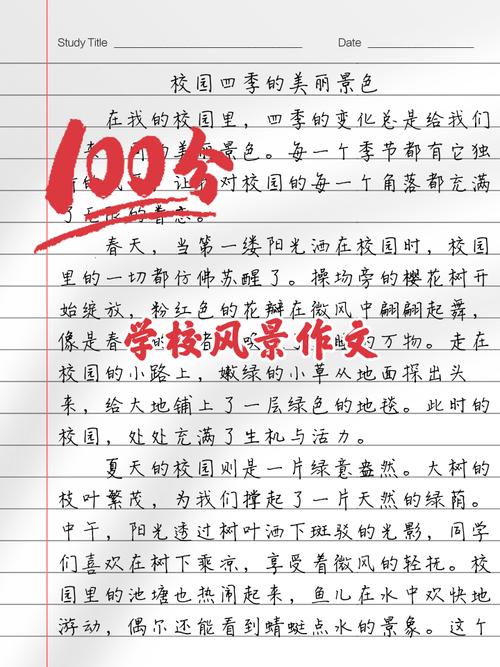 Study Title
Date
校园四季的美丽景色
在我的校园里，四季的变化总是给我们
的美丽景色。每一个季节都有它独
100分
对校园的每一个角落都充满
春天，当第一缕阳光洒在校园时，校园
里的一切都仿佛苏醒了。操场旁的樱花树开
始绽放，粉红色的花瓣在微风中翩翩起舞，
像是春
万物。走在
学校风景作文
校园的小路上，嫩绿的小草从地面探出头
来，给大地铺上了一层绿色的地毯。此时的
校园，处处充满了生机与活力。
夏天的校园则是一片绿意盎然。大树的
枝叶繁茂，为我们撑起了一片天然的绿荫。
中午，阳光透过树叶洒下斑驳的光影，同学
们喜欢在树下乘凉，享受着微风的轻抚。校
园里的池塘也热闹起来，鱼儿在水中欢快地
游动，偶尔还能看到蜻蜓点水的景象。这个